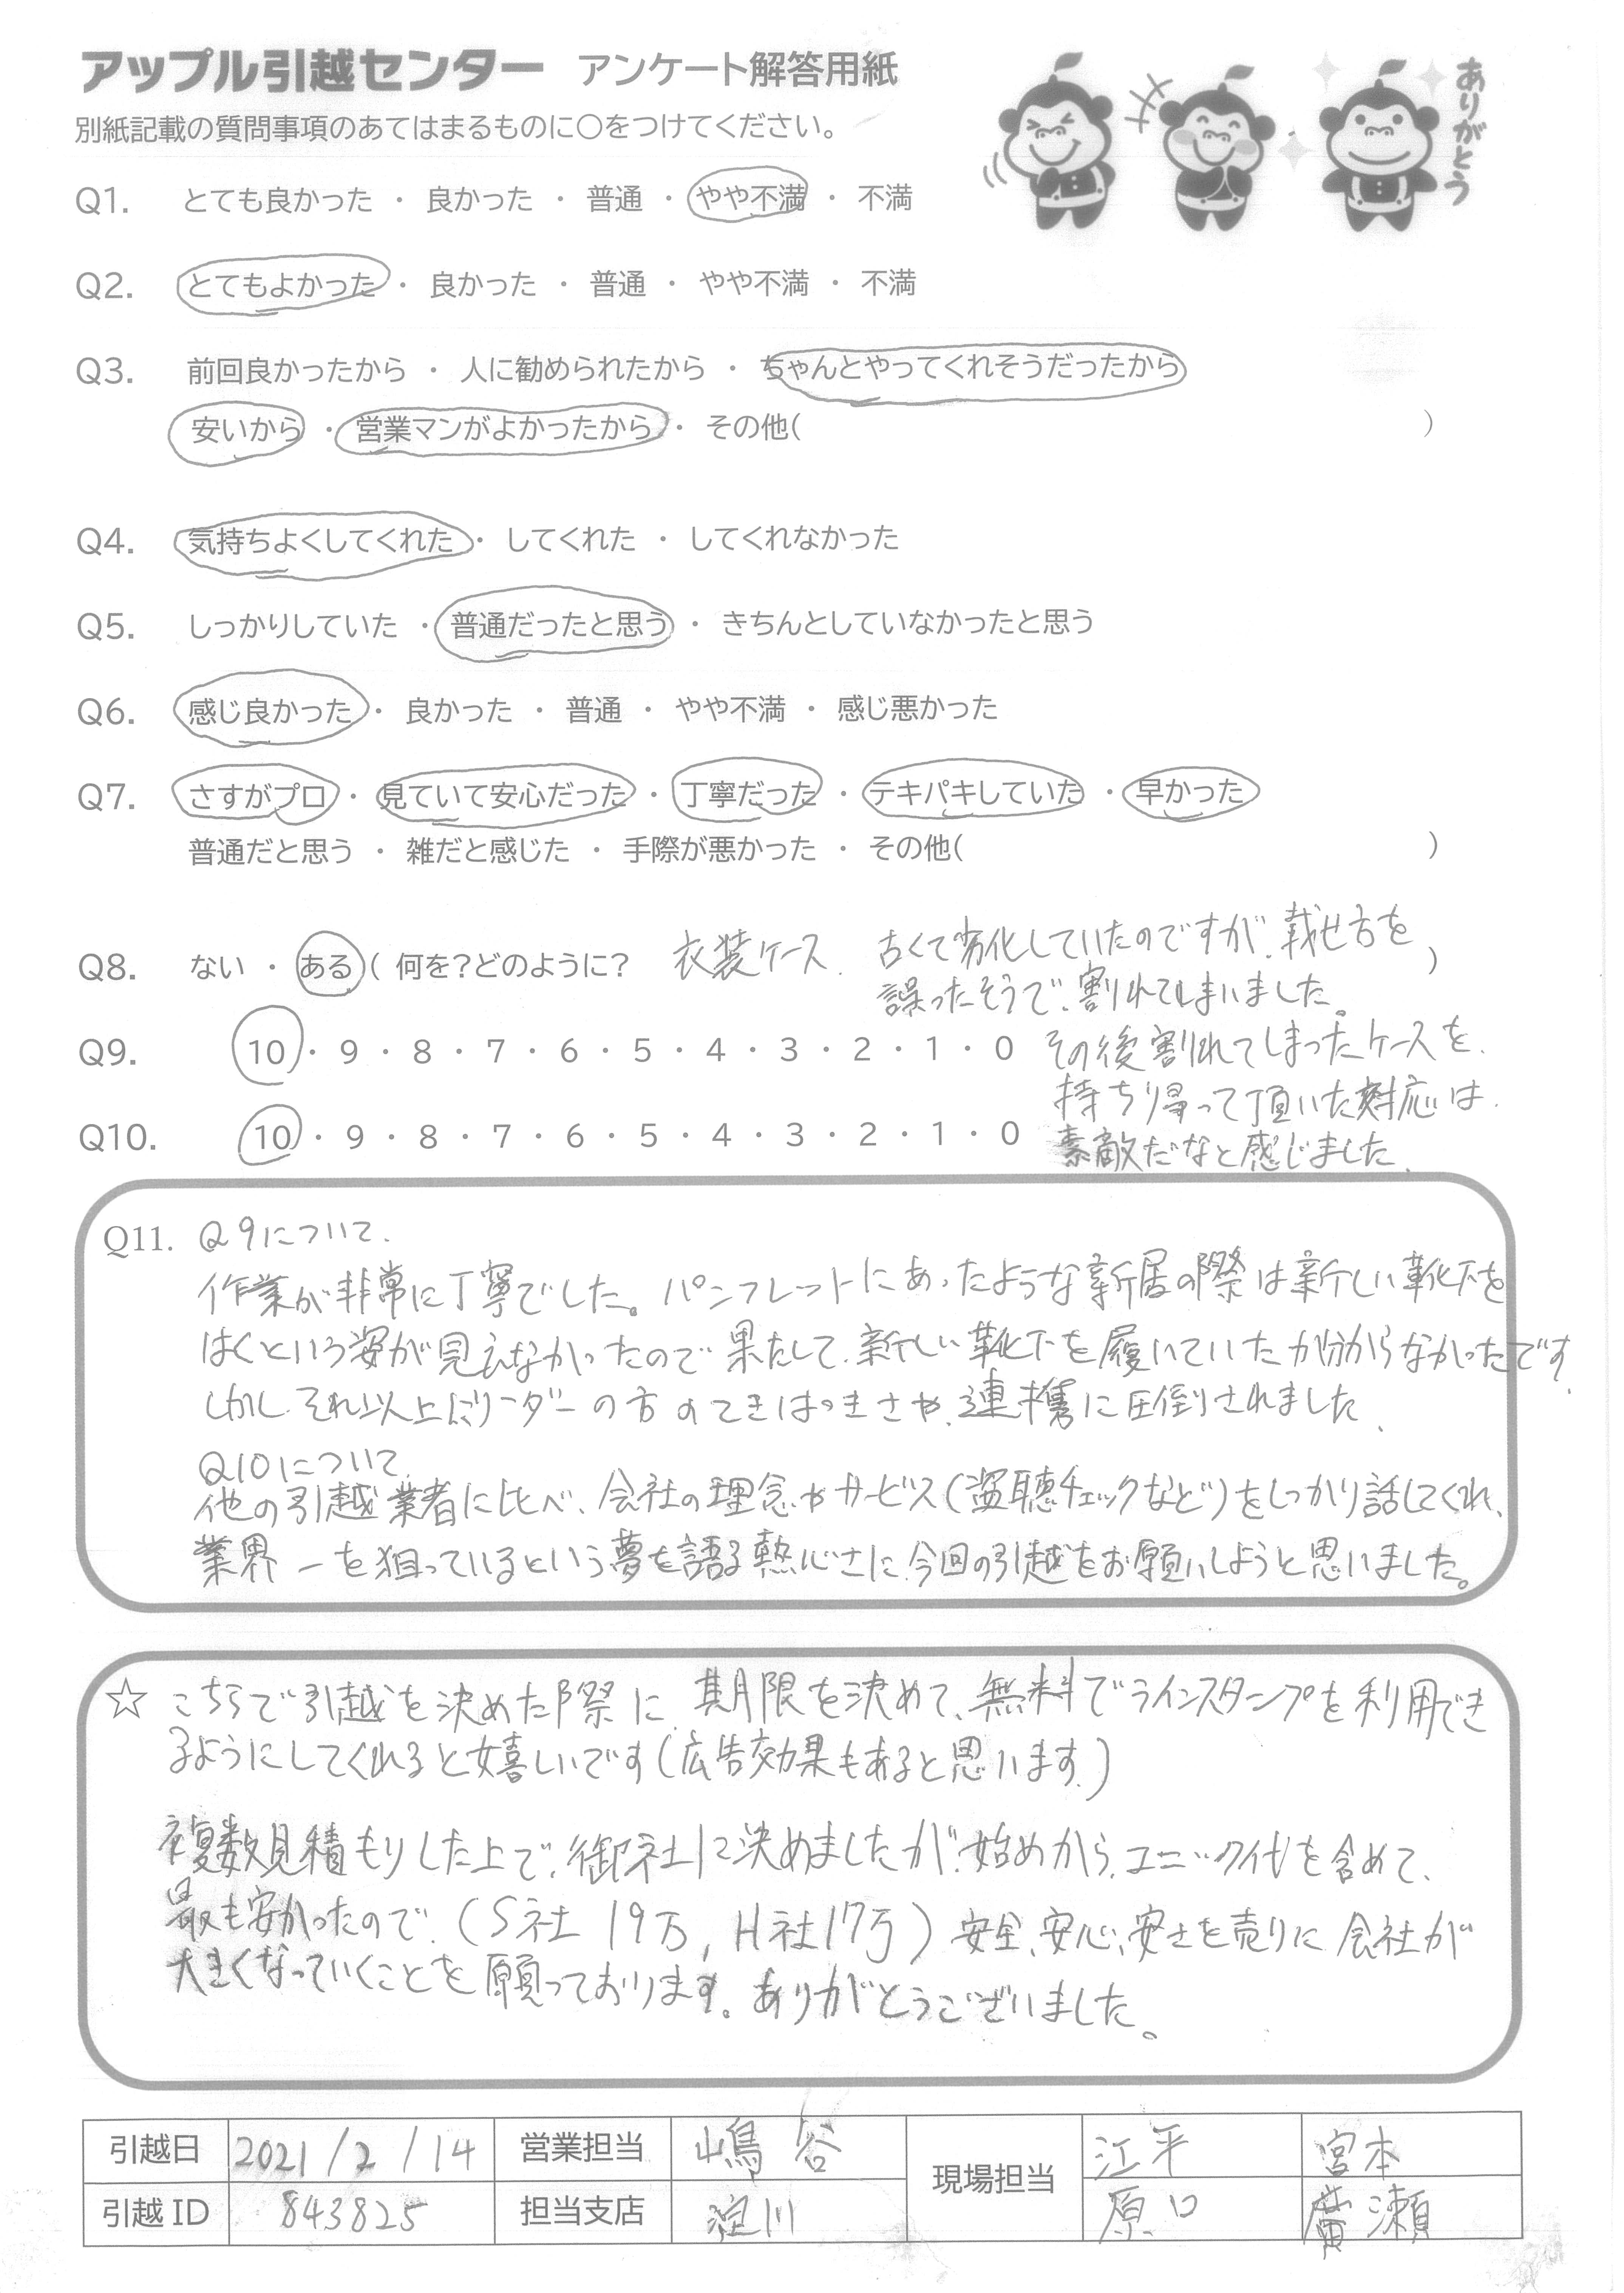 アップル引越センター アンケート解答用紙
ありがとう
別紙記載の質問事項のあてはまるものに○をつけてください。
Q1. とても良かった ・ 良かった ・ 普通 ・ やや不満 ・ 不満
Q2. とてもよかった ・ 良かった ・ 普通 ・ やや不満 ・ 不満
Q3. 前回良かったから ・ 人に勧められたから ・ ちゃんとやってくれそうだったから
安いから ・ 営業マンがよかったから ・ その他( )
Q4. 気持ちよくしてくれた ・ してくれた ・ してくれなかった
Q5. しっかりしていた ・ 普通だったと思う ・ きちんとしていなかったと思う
Q6. 感じ良かった ・ 良かった ・ 普通 ・ やや不満 ・ 感じ悪かった
Q7. さすがプロ ・ 見ていて安心だった ・ 丁寧だった ・ テキパキしていた ・ 早かった
普通だと思う ・ 雑だと感じた ・ 手際が悪かった ・ その他( )
Q8. ない ・ ある ( 何を?どのように? 衣装ケース. 古くて劣化していたのですが、載せ方を )
誤ったそうで、割れてしまいました。
Q9. 10 ・ 9 ・ 8 ・ 7 ・ 6 ・ 5 ・ 4 ・ 3 ・ 2 ・ 1 ・ 0 その後割れてしまったケースを、
持ち帰って頂いた対応は、
Q10. 10 ・ 9 ・ 8 ・ 7 ・ 6 ・ 5 ・ 4 ・ 3 ・ 2 ・ 1 ・ 0 素敵だなと感じました、
Q11. Q9について、
作業が非常に丁寧でした。パンフレットにあったような新居の際は新しい靴下を
はくという姿が見えなかったので果たして、新しい靴下を履いていたか分からなかったです、
しかし、それ以上にリーダーの方のてきぱきさや、連携に圧倒されました、
Q10について、
他の引越業者に比べ、会社の理念やサービス(盗聴チェックなど)をしっかり話してくれ、
業界一を狙っているという夢を語る熱心さに、今回の引越をお願いしようと思いました。
☆ こちらで引越を決めた際に、期限を決めて、無料でラインスタンプを利用でき
るようにしてくれると嬉しいです(広告効果もあると思います。)
複数見積もりした上で、御社に決めましたが、始めから、ユニック代を含めて、
最も安かったので、(S社 19万, H社17万) 安全、安心、安さを売りに 会社が
大きくなっていくことを願っております。ありがとうございました。
引越日 2021/2/14 営業担当 嶋谷 現場担当 江平 宮本
引越ID 843825 担当支店 淀川 原口 廣瀬